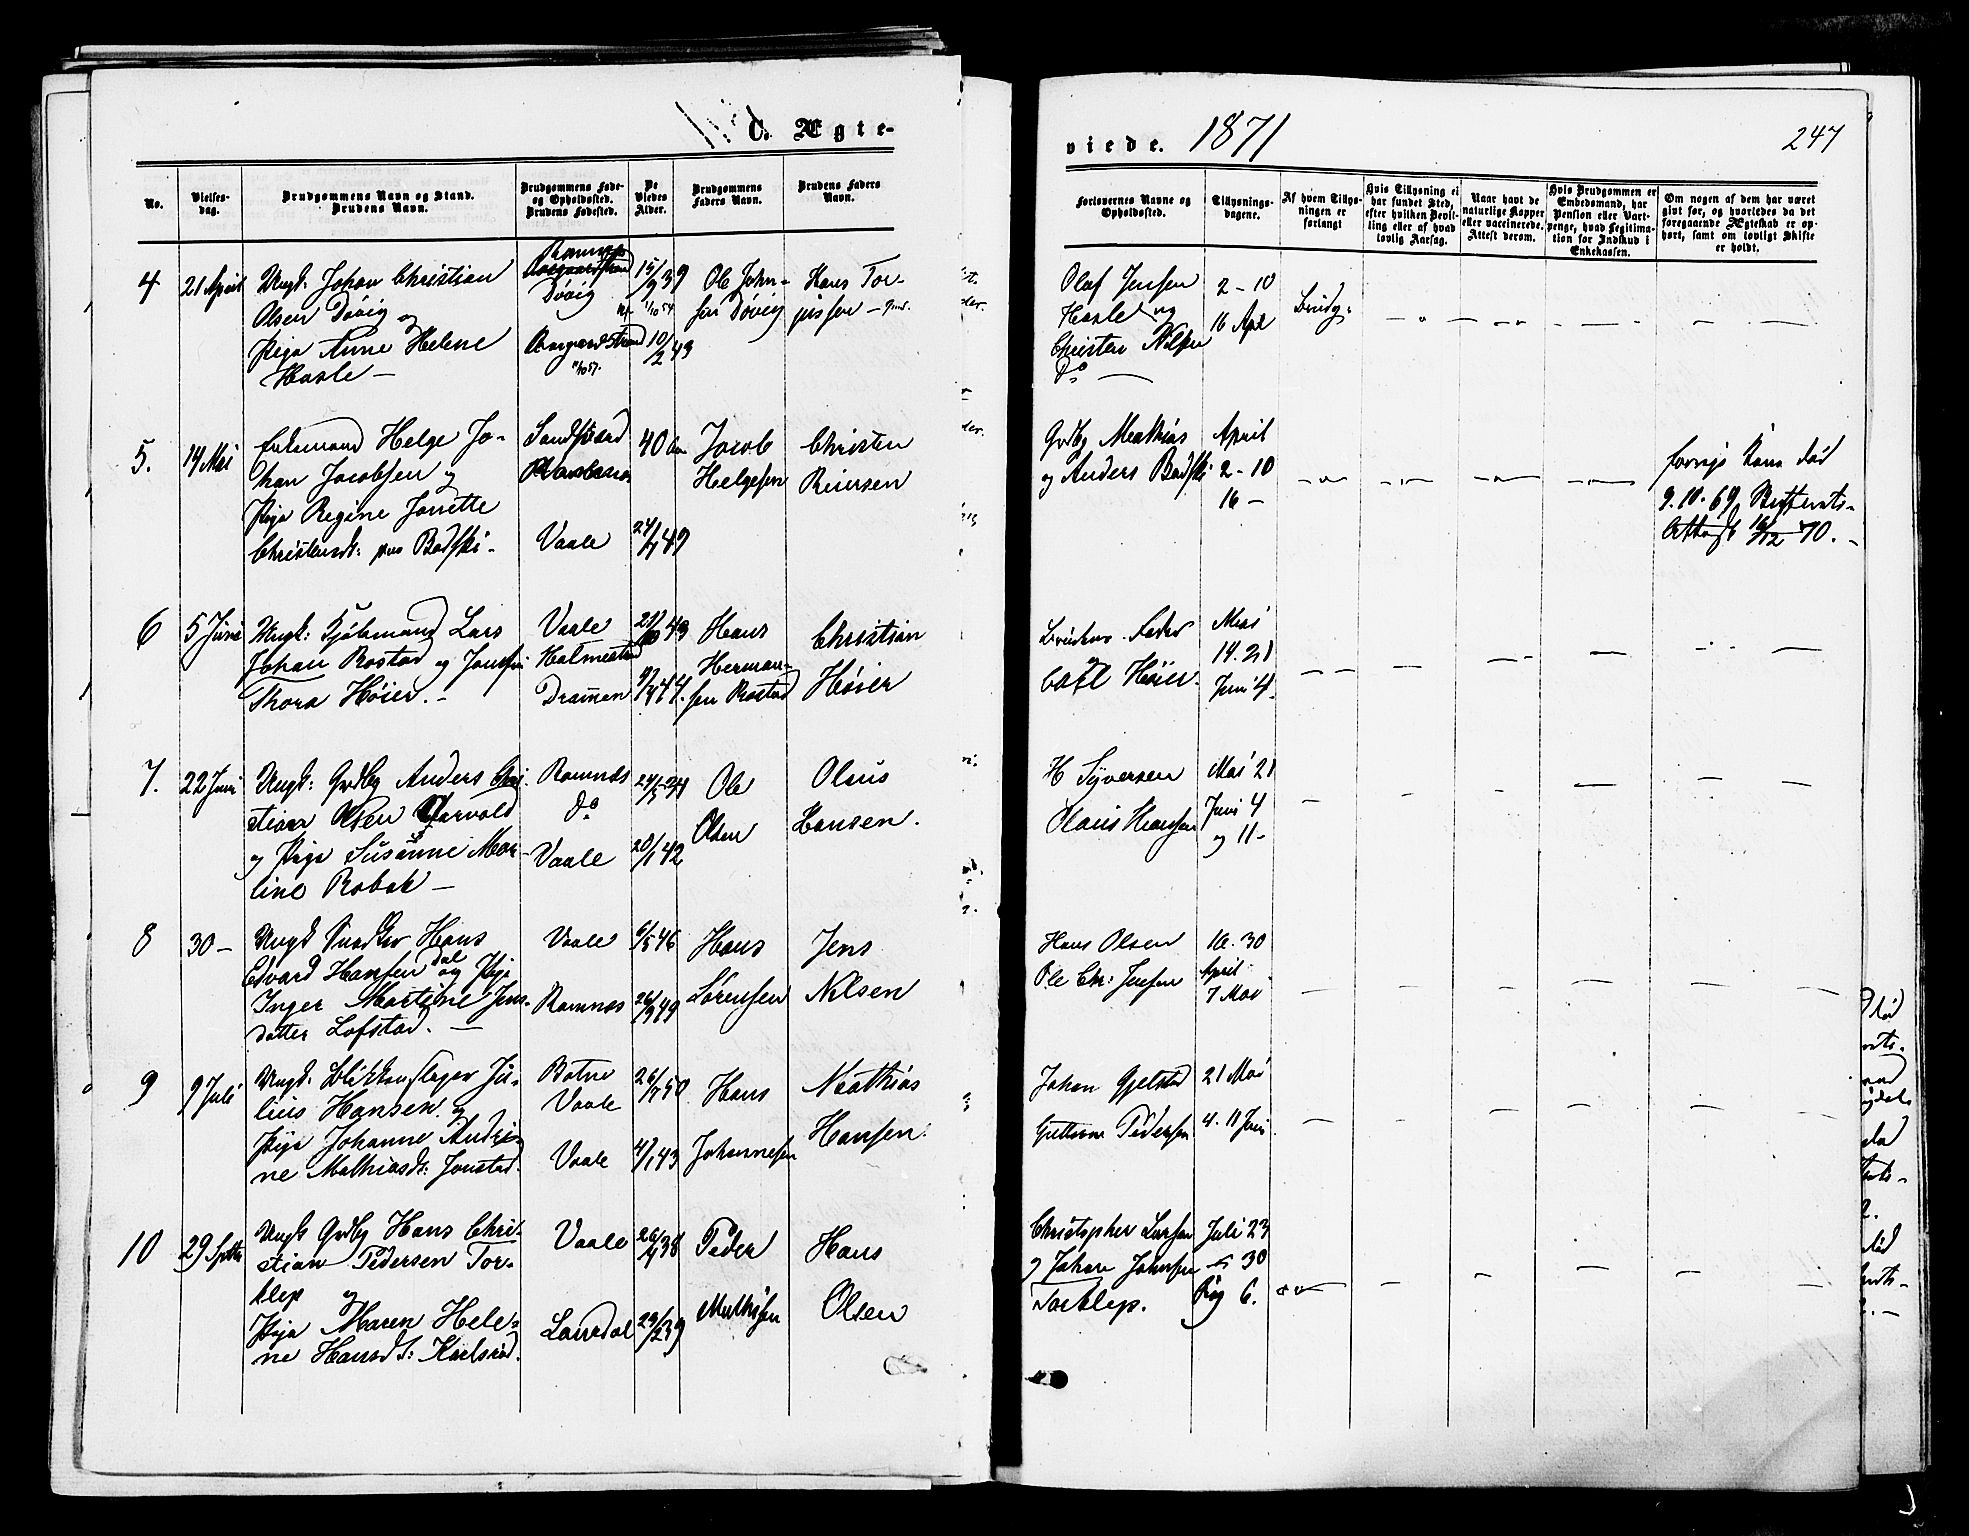 C. Ægte-
viede. 1871
247
No.
Vielses-
dag.
Brudgommens Navn og Stand.
Brudens Navn.
Brudgommens Føde-
og Opholdssted.
Brudens Fødested.
De
Viedes
Alder.
Brudgommens
Faders Navn.
Brudens Faders
Navn.
Forlovernes Navne og
Opholdssted.
Tillysnings-
dagene.
Af hvem Tillys-
ningen er
forlangt
Hvis Tillysning ei
har fundet Sted,
efter hvilken Bevil-
ling eller af hvad
lovlig Aarsag.
Naar havt de
naturlige Kopper
eller vaccinerede.
Attest derom.
Hvis Brudgommen er
Embedsmand, har
Pension eller Vart-
penge, hvad Legitima-
tion for Indskud i
Enkekassen.
Om nogen af dem har været
givt før, og hvorledes da det
foregaaende Ægteskab er op-
hørt, samt om lovligt Skifte
er holdt.
4
21 April
Ungk: Johan Christian
Olsen Døvig og
Pige Anne Helene
Hasle —
Ramnæs
Døvig
Aasgaardstrand
15/9 39
10/2 43
Ole John-
sen Døvig
Hans Tor-
jussen
Olaf Jensen
Hasle og
Christen Nilsen
Do —
2 - 10
16 Apl
Brudg:
5.
14 Mai
Enkemand Helge Jo-
han Jacobsen og
Pige Regine Jonette
Christensd: paa Badski -
Sandsverd
Vaale
40 Aar
24/4 49
Jacob
Helgesen
Christen
Reiersen
Grdbg Mathias
og Anders Badski
April
2 - 10
16 -
forrige Kone død
9.10.69, Skifterets-
Attest 16/12 70. -
6
5 Juni
Ungk: Sjømand Lars
Johan Rostad og Jomfru
Thora Høier. -
Vaale
Holmestrand
Drammen
44.
Hans
Herman-
sen Rostad
Christian
Høier
Brudens Fader
og
Carl Høier.
Mai
14. 21
Juni 4
7.
22 Juni
Ungk: Grdbg Anders Chri-
stian Olsen Qvarvold
og Pige Susanne Mar-
line Robak —
Ramnæs
Do
Vaale
20/1 42
Ole
Olsen
Olaus
Hansen.
H Syversen
Olaus Hansen
Mai 21
Juni 4
og 11 -
8
30 —
Ungk Snedker Hans
Edvard Hansen dal og Pige
Inger Martine Jens-
datter Lofstad. —
Vaale
Ramnæs
6/5 46
26/9 49
Hans
Sørensen
Jens
Nilsen
Hans Olsen
Ole Chr: Jensen
16. 30
April
7 Mai
9
9 Juli
Ungk: Blikkenslager Ju-
lius Hansen og
Pige Johanne Andri-
ne Mathiasd: Jonstad.
Botne
Vaale
Vaale
26/7 50
4/1 43
Hans
Johannesen
Mathias
Hansen.
Johan Gjelstad
Guttorm Pedersen
21 Mai
4. 11 Juni
10
29 Septbr
Ungk Grdbg Hans Chri-
stian Pedersen Tor-
klep og
Pige Maren Hele-
ne Hansd: Karlsrød.
Vaale
Laurdal
26/4 38
29/2 39
Peder
Mathisen
Hans
Olsen
Christopher Larsen
og Johan Johnsen
Torklep.
Juli 23
— 30
Aug 6.